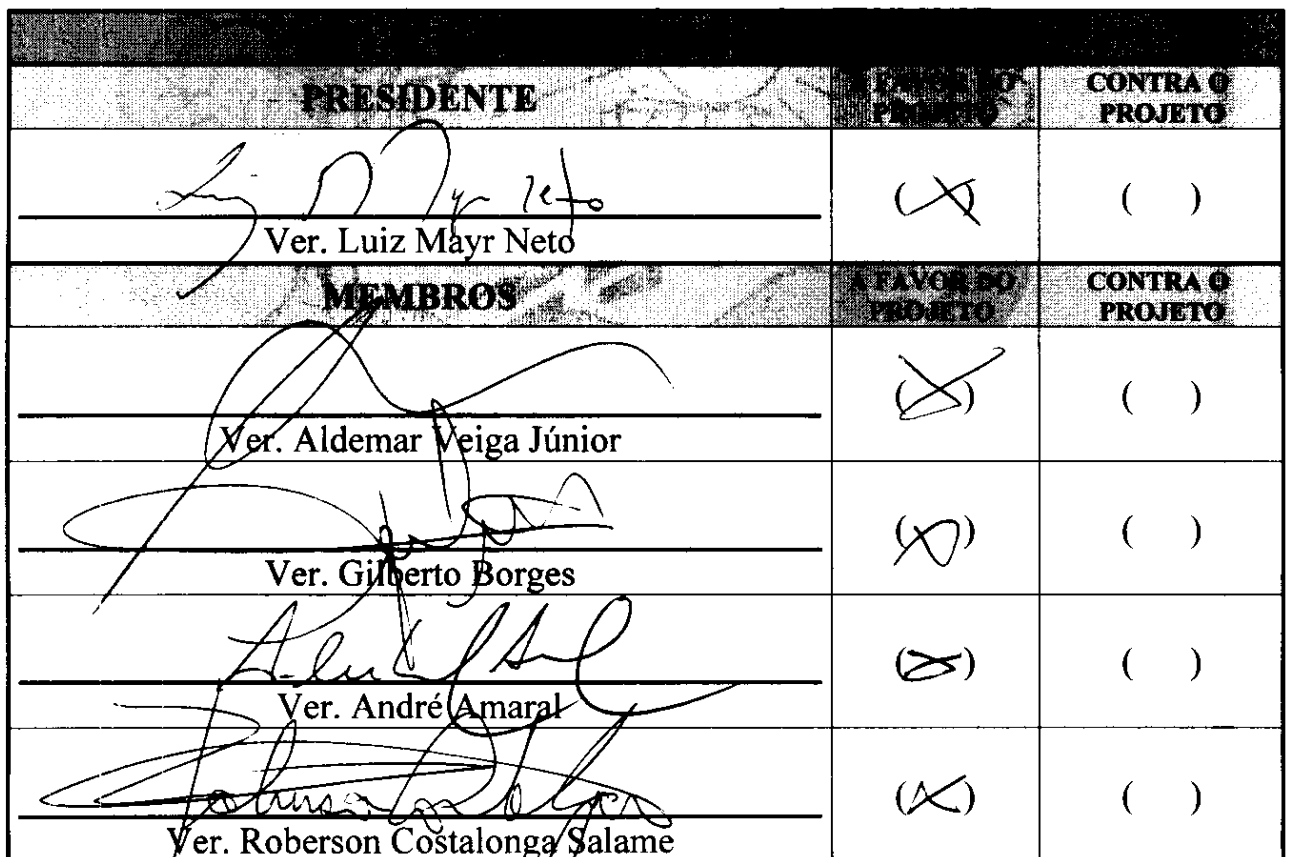 PRESIDENTE A FAVOR DO PROJETO CONTRA O PROJETO
Luiz Mayr Neto (X) ( )
Ver. Luiz Mayr Neto
MEMBROS A FAVOR DO PROJETO CONTRA O PROJETO
(X) ( )
Ver. Aldemar Veiga Júnior
(X) ( )
Ver. Gilberto Borges
(X) ( )
Ver. André Amaral
(X) ( )
Ver. Roberson Costalonga Salame